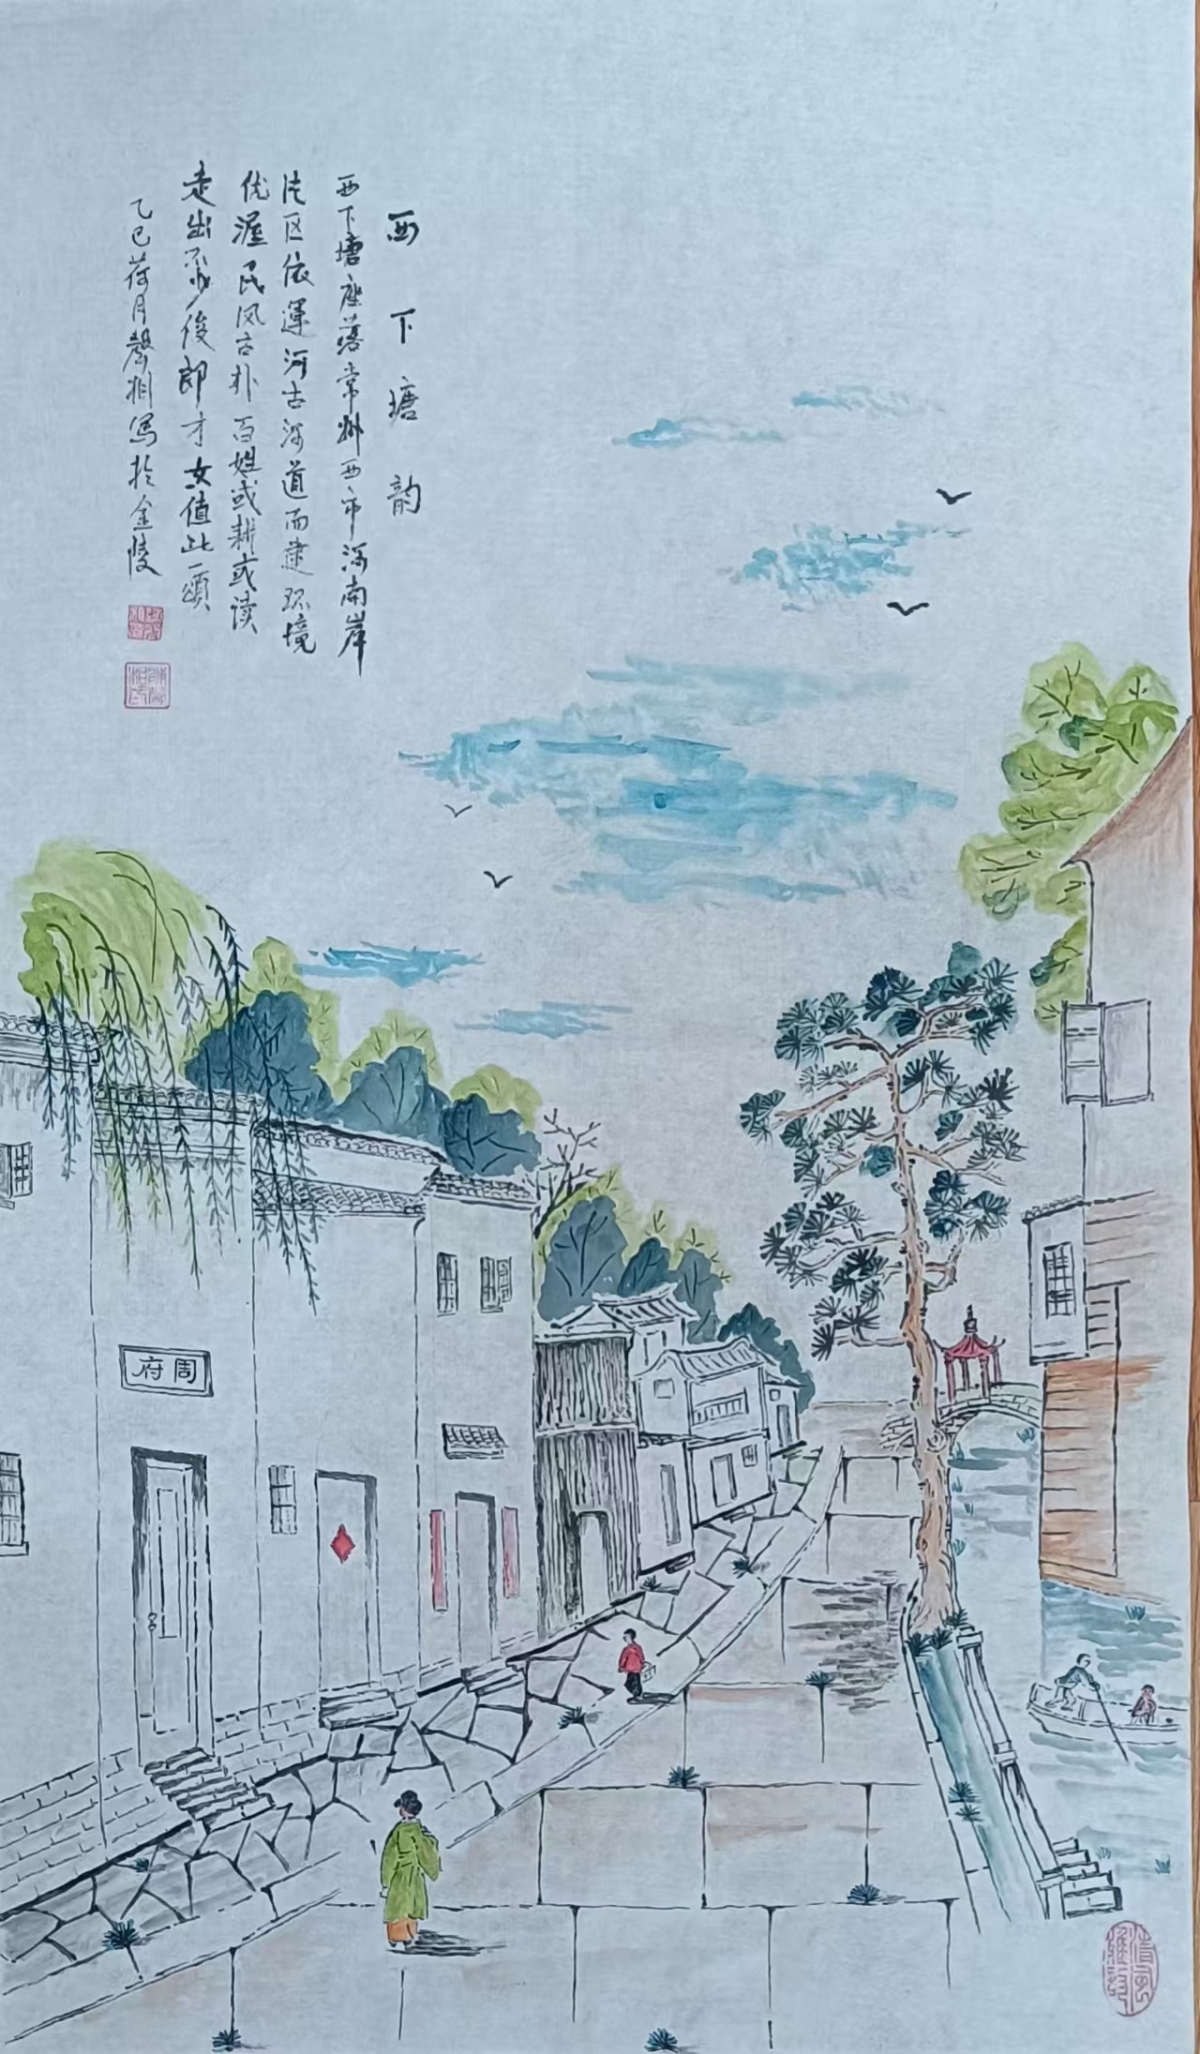 西下塘韵
西下塘座落常州西市河南岸
片区依運河古河道而建環境
优渥民风古朴百姓或耕或读
走出不少俊郎才女值此一颂
乙巳荷月馨相写於金陵
周府